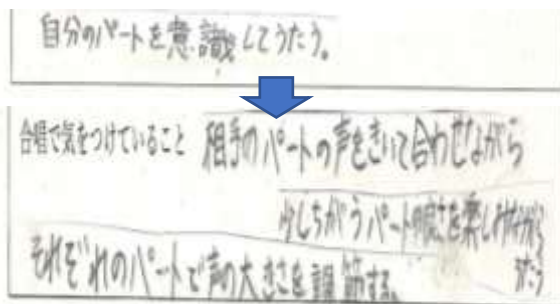 自分のパートを意識してうたう。
合唱で気をつけていること 相手のパートの声をきいて合わせながら
少しちがうパートの響きを楽しみながら
うたう
それぞれのパートで声の大きさを調節する。